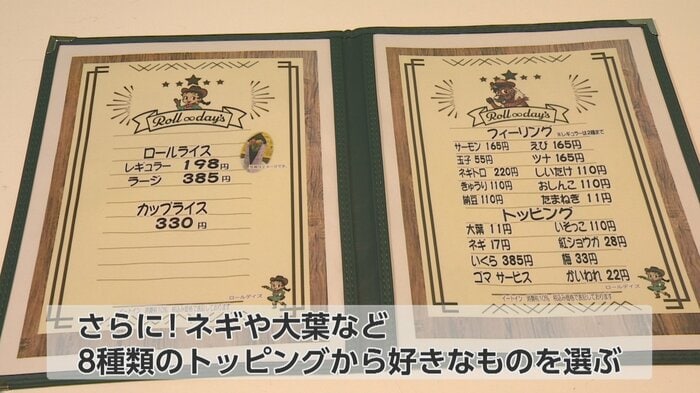 Roll∞day's
ロールライス
レギュラー 198円
ラージ 385円
カップライス
330円
ロールデイズ
Roll∞day's
フィーリング ※レギュラーは2種まで
サーモン 165円 えび 165円
玉子 55円 ツナ 165円
ネギトロ 220円 しいたけ 110円
きゅうり 110円 おしんこ 110円
納豆 110円 たまねぎ 11円
トッピング
大葉 11円 いそっこ 110円
ネギ 17円 紅ショウガ 28円
いくら 385円 梅 33円
ゴマ サービス かいわれ 22円
ロールデイズ
さらに!ネギや大葉など
8種類のトッピングから好きなものを選ぶ